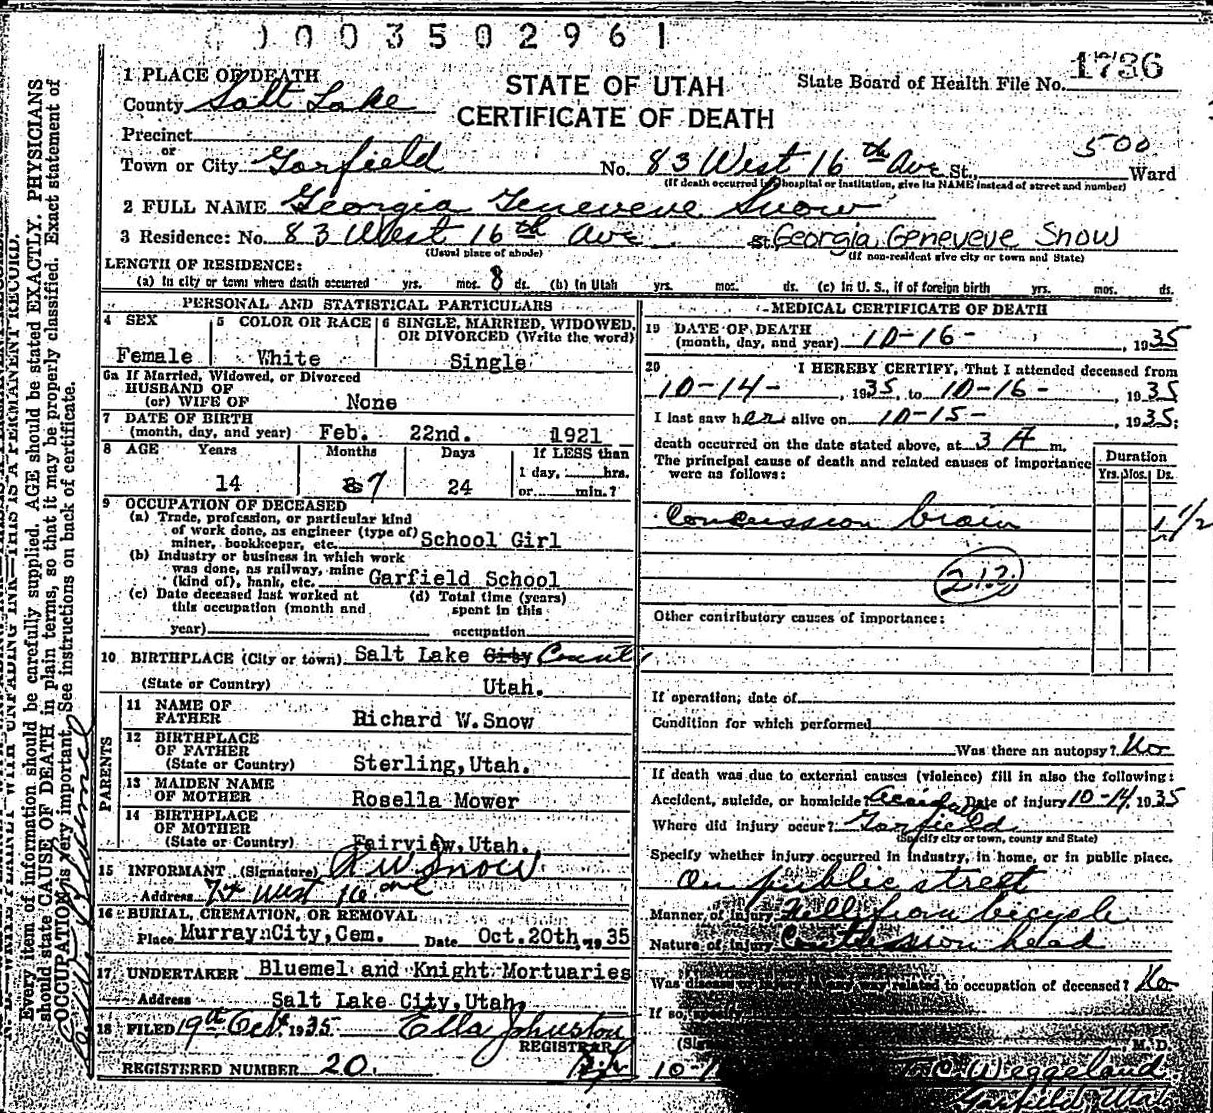 0003502961
1736
STATE OF UTAH
CERTIFICATE OF DEATH
State Board of Health File No.
1 PLACE OF DEATH
County Salt Lake
Precinct
or
Town or City Garfield No. 83 West 16th Ave St., 500 Ward
(If death occurred in hospital or institution, give its NAME instead of street and number)
2 FULL NAME Georgia Geneveve Snow
3 Residence: No. 83 West 16th Ave St. Georgia Geneveve Snow
(Usual place of abode) (If non-resident give city or town and State)
LENGTH OF RESIDENCE:
(a) In city or town where death occurred yrs. mos. 8 ds. (b) In Utah yrs. mos. ds. (c) In U. S., if of foreign birth yrs. mos. ds.
PERSONAL AND STATISTICAL PARTICULARS
4 SEX
Female
5 COLOR OR RACE
White
6 SINGLE, MARRIED, WIDOWED,
OR DIVORCED (Write the word)
Single
6a If Married, Widowed, or Divorced
HUSBAND OF
(or) WIFE OF None
7 DATE OF BIRTH
(month, day, and year) Feb. 22nd. 1921
8 AGE Years Months Days If LESS than
1 day, hrs.
or min.?
14 8 7 24
9 OCCUPATION OF DECEASED
(a) Trade, profession, or particular kind
of work done, as engineer (type of)
miner, bookkeeper, etc. School Girl
(b) Industry or business in which work
was done, as railway, mine
(kind of), bank, etc. Garfield School
(c) Date deceased last worked at
this occupation (month and
year)
(d) Total time (years)
spent in this
occupation
10 BIRTHPLACE (City or town) Salt Lake City County
(State or Country) Utah.
PARENTS
11 NAME OF
FATHER Richard W. Snow
12 BIRTHPLACE
OF FATHER
(State or Country) Sterling, Utah.
13 MAIDEN NAME
OF MOTHER Rosella Mower
14 BIRTHPLACE
OF MOTHER
(State or Country) Fairview, Utah.
15 INFORMANT (Signature) R W Snow
Address 74 West 16 ave
16 BURIAL, CREMATION, OR REMOVAL
Place Murray City, Cem. Date Oct. 20th, 1935
17 UNDERTAKER Bluemel and Knight Mortuaries
Address Salt Lake City, Utah.
18 FILED 19th Oct 1935 Ella Johnston
REGISTRAR
REGISTERED NUMBER 20.
MEDICAL CERTIFICATE OF DEATH
19 DATE OF DEATH
(month, day, and year) 10-16- , 1935
20 I HEREBY CERTIFY, That I attended deceased from
10-14- , 1935, to 10-16- , 1935
I last saw her alive on 10-15- , 1935;
death occurred on the date stated above, at 3 A m.
The principal cause of death and related causes of importance
were as follows:
Duration
Yrs. Mos. Ds.
Concussion brain 1 1/2
212
Other contributory causes of importance:
If operation, date of
Condition for which performed
Was there an autopsy? No
If death was due to external causes (violence) fill in also the following:
Accident, suicide, or homicide? Accident Date of injury 10-14, 1935
Where did injury occur? Garfield
(Specify city or town, county and State)
Specify whether injury occurred in industry, in home, or in public place.
On public street
Manner of injury Fell from bicycle
Nature of injury Concussion head
Was disease or injury in any way related to occupation of deceased? No
If so, specify
M. D.
Garfield Utah
N. B.—WRITE PLAINLY WITH UNFADING INK—THIS IS A PERMANENT RECORD.
Every item of information should be carefully supplied. AGE should be stated EXACTLY. PHYSICIANS
should state CAUSE OF DEATH in plain terms, so that it may be properly classified. Exact statement of
OCCUPATION is very important. See instructions on back of certificate.